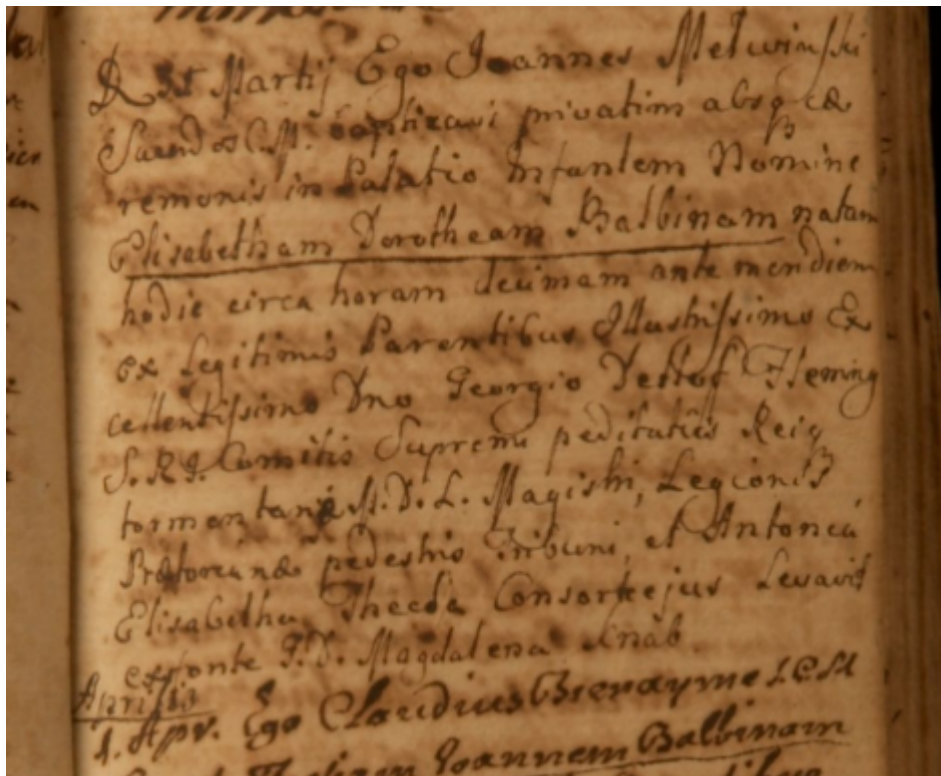 D 31 Martij Ego Joannes Metwinski
Sacerdos C.M. baptizavi privatim absq cæ
remoniis in Palatio Infantem Nomine
Elisabetham Dorotheam Balbinam natam
hodie circa horam decimam ante meridiem
ex Legitimis Parentibus Illustrissimo Ex
cellentissimo Dno Georgio Detlof Fleming
S.R.I. Comitis Supremi peditatus Reiq
tormentariæ M.D.L. Magistri, Legionis
Prætorianæ pedestris Tribuni, et Antonia
Elisabetha Thecla Consorte ejus Levavit
ex fonte G.D. Magdalena
Aprilis
1. Apr. Ego Claudius Bierayme S.C.M
Joannem Balbinam